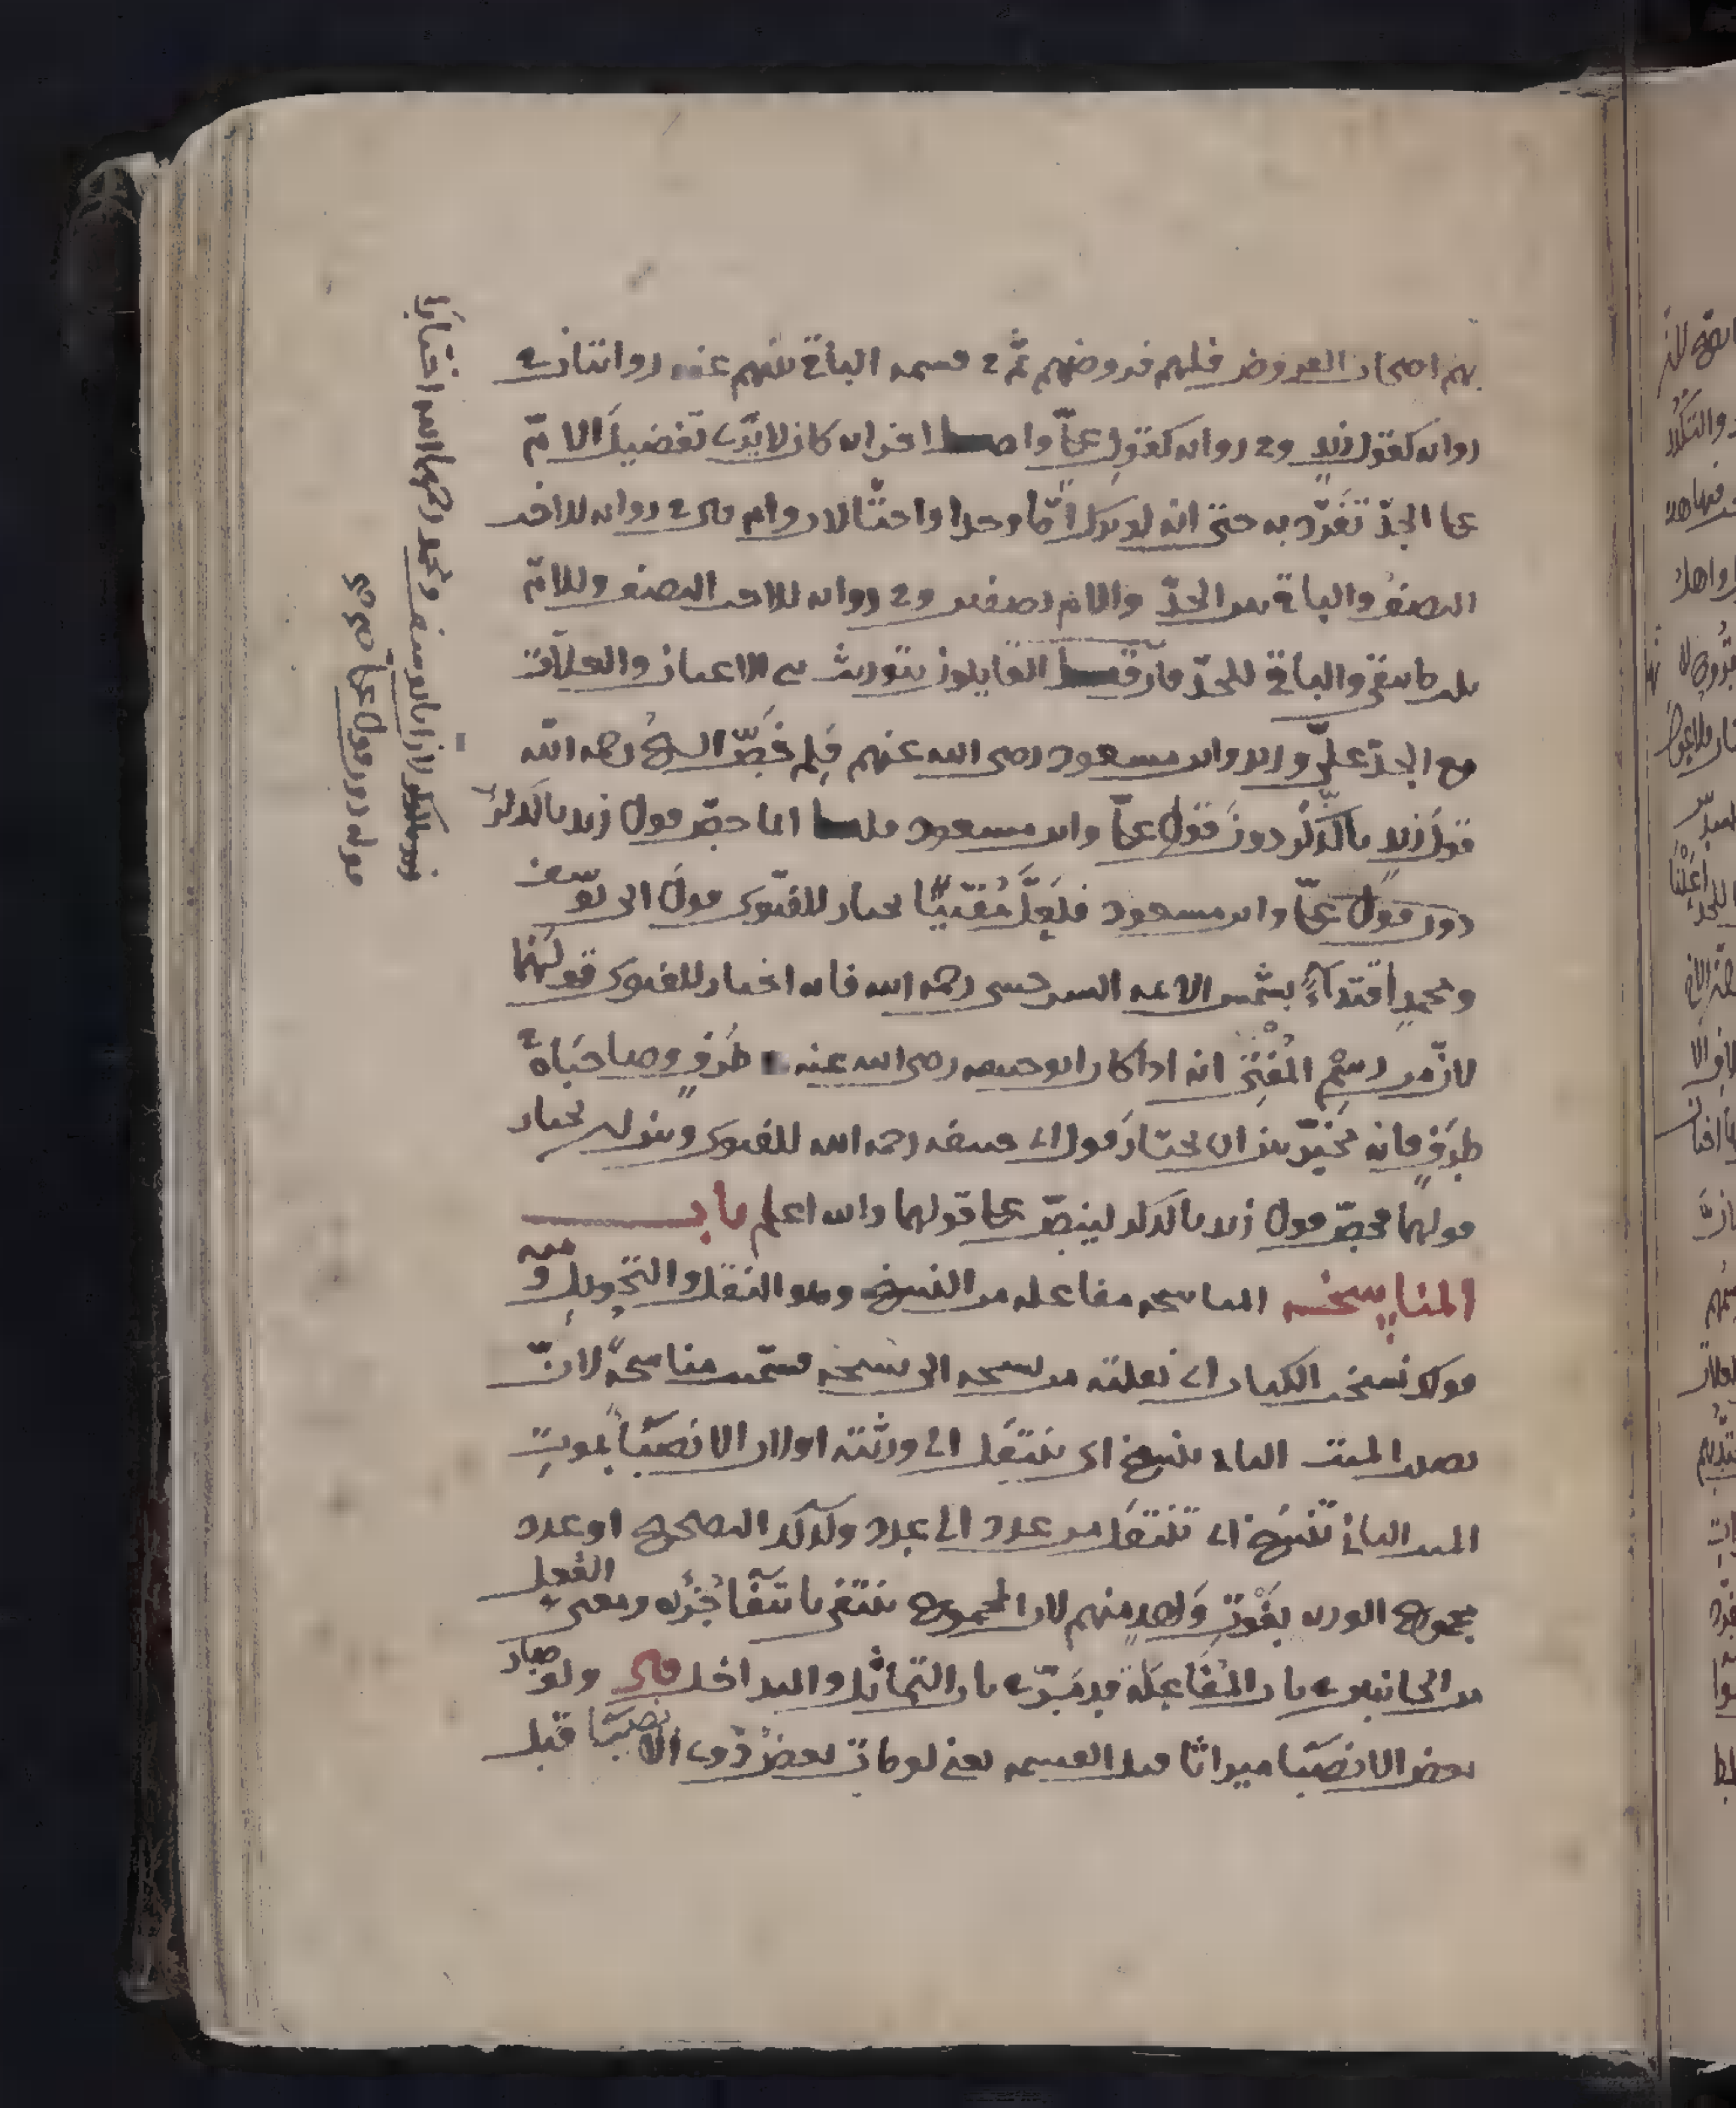 بهم اصحاب الفروض فلهم فروضهم ثم في قسمة الباقي بينهم عنه روايتان في
رواية كقول زيد وفي رواية كقول علي واصل اخر انه كان لا يرى تفضيل الام
على الجد تفرد به حتى انه لو ترك اما وجدا واختا لاب وام ففي رواية للاخت
النصف والباقي بين الجد والام نصفين وفي رواية للاخت النصف وللام
ثلث ما بقي والباقي للجد فان قيل القايلون بتوريث بني الاعيان والعلات
مع الجد علي وزيد وابن مسعود رضي الله عنهم فلم خص الشيخ رحمه الله
قول زيد بالذكر دون قول علي وابن مسعود قلنا انما خص قول زيد بالذكر
دون قول علي وابن مسعود فلعل مفتيا يختار للفتوى قول ابي يوسف
ومحمد اقتداء بشمس الائمة السرخسي رحمه الله فانه اختار للفتوى قولهما
لان من رسم المفتي انه اذا كان ابو حنيفة رضي الله عنه في طرف وصاحباه في
طرف فانه مخير بين ان يختار قول ابي حنيفة رحمه الله للفتوى وبين ان يختار
قولهما فخص قول زيد بالذكر لينص على قولهما والله اعلم باب
المناسخة المناسخة مفاعلة من النسخ وهو النقل والتحويل ومنه
قولك نسخت الكتاب اي نقلته من نسخة الى نسخة فسميت مناسخة لان
نصيب الميت الثاني ينسخ اي ينتقل الى ورثته او لان الانصبا بموت
الميت الثاني تنسخ اي تنتقل من عدد الى عدد وكذلك التصحيح او عدد
مجموع الورثة بفوت واحد منهم لان المجموع ينتفي بانتفا جزئه ومعنى الفعل
من الجانبين في باب المفاعلة قد مر في باب التماثل والتداخل قال ولو صار
بعض الانصبا ميراثا قبل القسمة يعني لو مات بعض ذوي الانصبا قبل
لان ابا يوسف ومحمد رحمهما الله اختارا
قوله دون قول علي